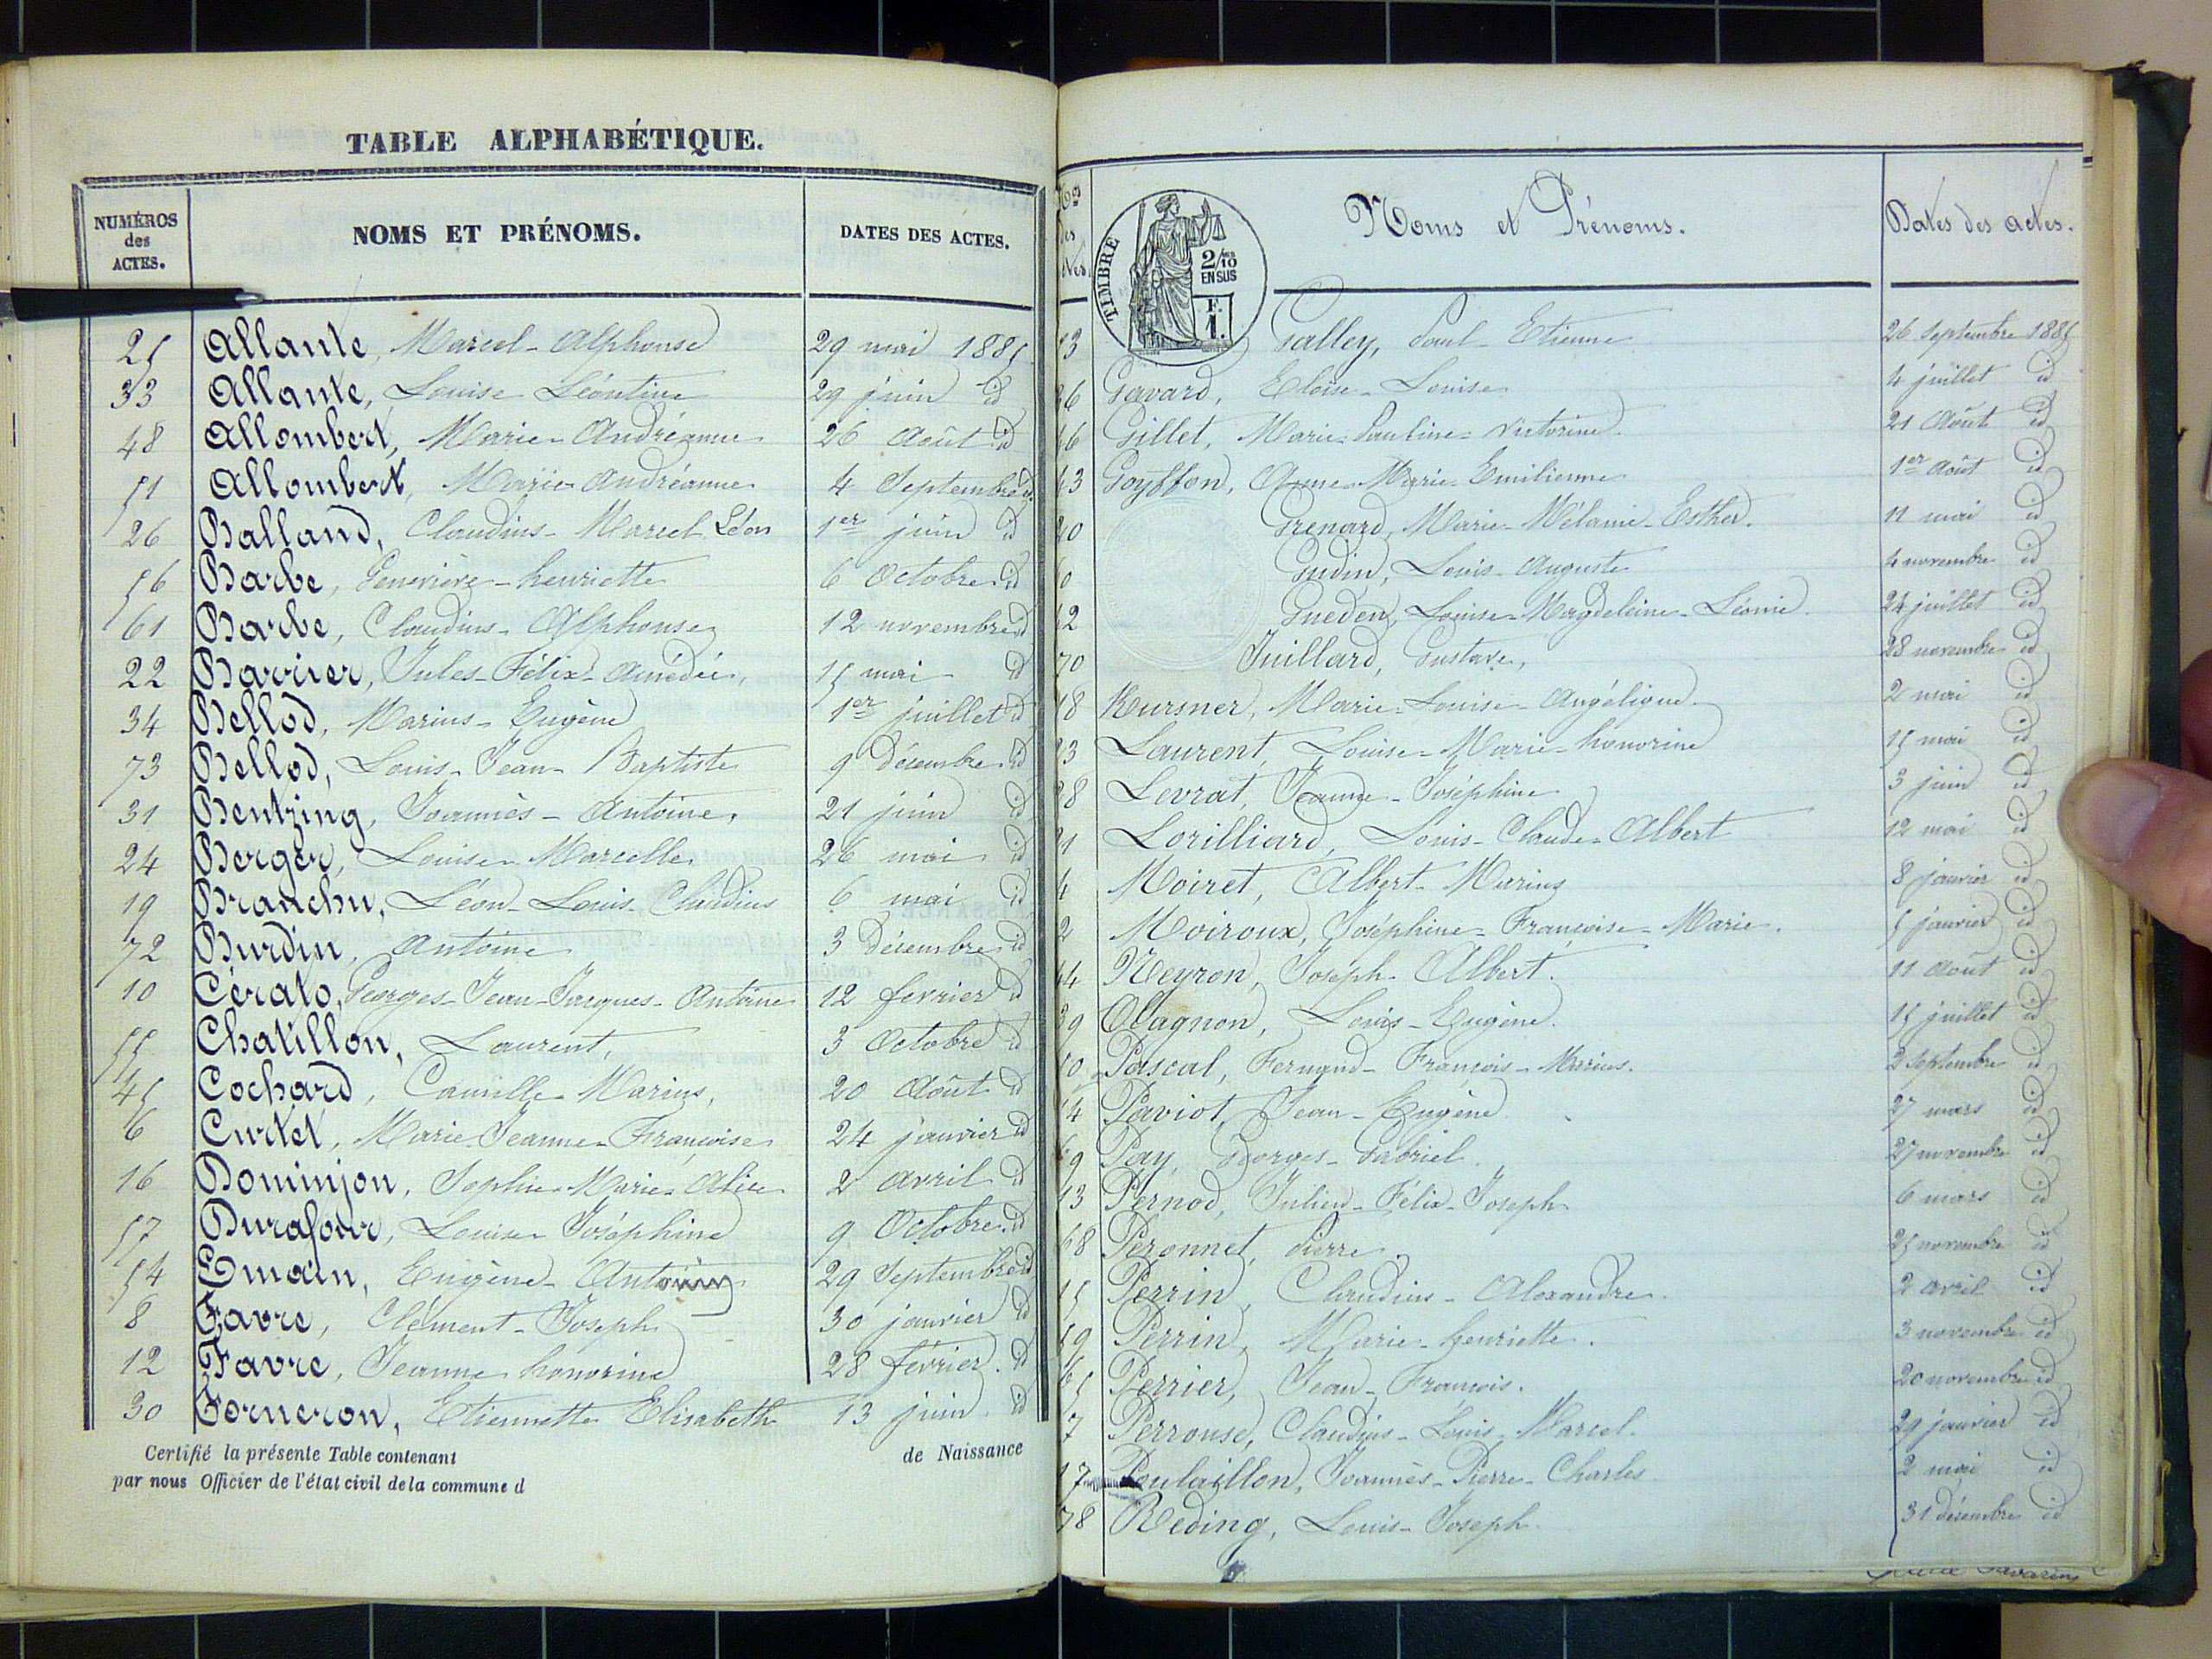 TABLE ALPHABÉTIQUE.
NUMÉROS des ACTES. NOMS ET PRÉNOMS. DATES DES ACTES.
25 Allante, Marcel-Alphonse 29 mai 1885
33 Allante, Louise Léontine 29 juin id
48 Allombert, Marie-Andréanne 26 Août id
51 Allombert, Marie-Andréanne 4 Septembre id
26 Balland, Claudius-Marcel Léon 1er juin id
56 Barbe, Geneviève-henriette 6 Octobre id
61 Barbe, Claudius-Alphonse 12 novembre id
22 Barrier, Jules-Félix-Amédée, 15 mai id
34 Bellod, Marius-Eugène 1er juillet id
73 Bellod, Louis-Jean-Baptiste 9 Décembre id
31 Bentzing, Joannès-Antoine, 21 juin id
24 Berger, Louise-Marcelle 26 mai id
19 Branchu, Léon-Louis-Claudius 6 mai id
72 Burdin, Antoine 3 Décembre id
10 Cérato, Georges-Jean-Jacques-Antoine 12 février id
55 Chatillon, Laurent, 3 Octobre id
45 Cochard, Camille-Marius, 20 Août id
6 Curtet, Marie Jeanne-Françoise 24 janvier id
16 Dominjon, Sophie-Marie-Alice 2 avril id
57 Durafour, Louise Joséphine 9 Octobre id
54 Emain, Eugène-Antoine 29 Septembre id
8 Favre, Clément-Joseph 30 janvier id
12 Favre, Jeanne honorine 28 février id
30 Forneron, Etiennette Elisabeth 13 juin id
Certifié la présente Table contenant de Naissance
par nous Officier de l'état civil de la commune d
Nos des actes. Noms et Prénoms. Dates des actes.
TIMBRE
2/10 EN SUS
F. 1.
53 Galley, Paul-Etienne 26 Septembre 1885
36 Gavard, Eloïse-Louise 4 juillet id
46 Gillet, Marie-Pauline-Victorine 21 Août id
43 Goyffon, Anne-Marie-Emilienne 1er Août id
20 Grenard, Marie-Mélanie-Esther. 11 mai id
60 Gudin, Louis-Auguste 4 novembre id
42 Gueden, Louise-Magdeleine-Léonie 24 juillet id
70 Juillard, Gustave, 28 novembre id
18 Kursner, Marie-Louise-Angélique 2 mai id
23 Laurent, Louise-Marie-honorine 15 mai id
28 Levrat, Jeanne-Joséphine 3 juin id
21 Lorilliard, Louis-Claude-Albert 12 mai id
4 Moiret, Albert-Marius 8 janvier id
2 Moiroux, Joséphine-Françoise-Marie. 5 janvier id
44 Neyron, Joseph-Albert. 11 Août id
39 Olagnon, Louis-Eugène. 15 juillet id
50 Pascal, Fernand-François-Marius. 2 Septembre id
14 Paviot, Jean-Eugène 27 mars id
69 Pay, Georges-Gabriel. 27 novembre id
13 Pernod, Julien-Félix-Joseph 6 mars id
68 Peronnet, Pierre 25 novembre id
15 Perrin, Claudius-Alexandre. 2 avril id
59 Perrin, Marie-henriette. 3 novembre id
65 Perrier, Jean-François. 20 novembre id
7 Perrouse, Claudius-Louis-Marcel. 29 janvier id
17 Poulaillon, Joannès-Pierre-Charles 2 mai id
78 Reding, Louis-Joseph 31 décembre id